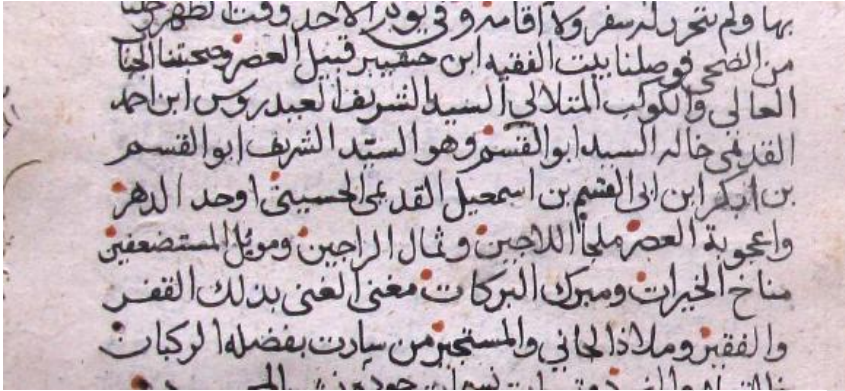 بها ولم يتحرر له سفر ولا اقامة وفي يوم الاحد وقت الظهر
من الضحى فوصلنا بيت الفقيه ابن حشيبر قبيل العصر وصحبتنا
العالي والكوكب المتلالي السيد الشريف العيدروس ابن احمد
القديمي خاله السيد ابو القسم وهو السيد الشريف ابو القسم
بن ابكر ابن ابي القسم بن اسمعيل القديمي الحسيني اوحد الدهر
واعجوبة العصر ملجأ اللاجين وثمال الراجين وموئل المستضعفين
مناخ الخيرات ومبرك البركات مغنى الغنى بذلك القفر
والفقير وملاذ الجاني والمستجير من سارت بفضله الركبان